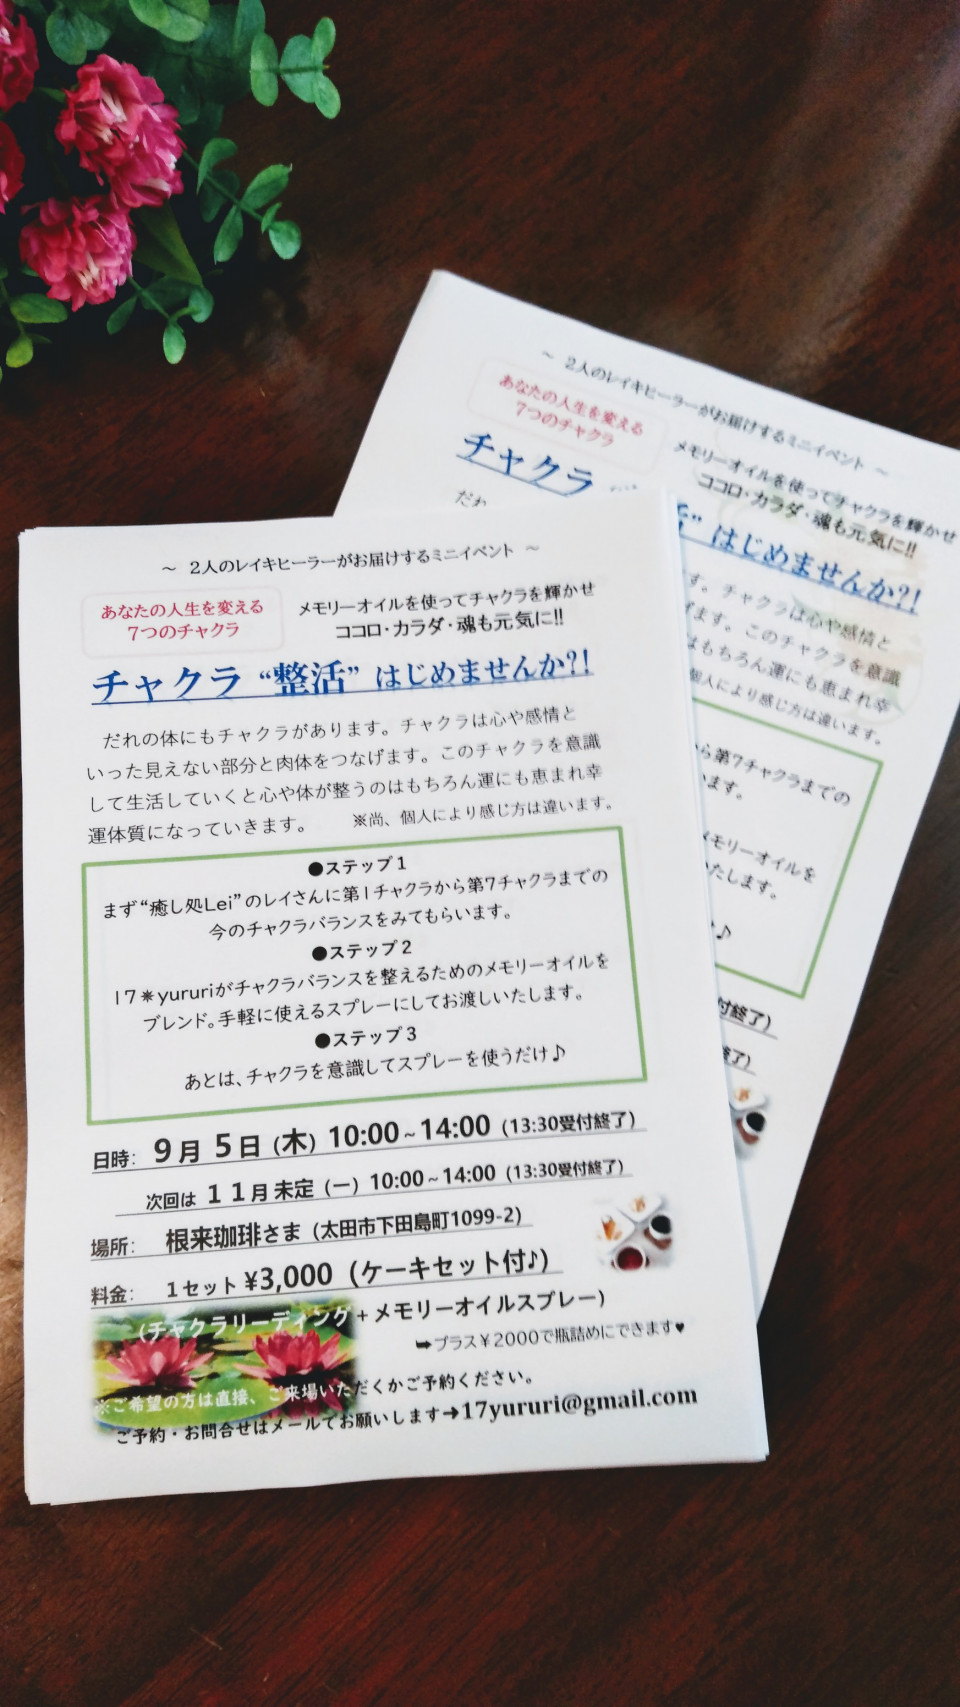 ～ 2人のレイキヒーラーがお届けするミニイベント ～
あなたの人生を変える
7つのチャクラ
メモリーオイルを使ってチャクラを輝かせ
ココロ・カラダ・魂も元気に!!
チャクラ “整活” はじめませんか?!
だれの体にもチャクラがあります。チャクラは心や感情と
いった見えない部分と肉体をつなげます。このチャクラを意識
して生活していくと心や体が整うのはもちろん運にも恵まれ幸
運体質になっていきます。 ※尚、個人により感じ方は違います。
●ステップ1
まず“癒し処Lei”のレイさんに第1チャクラから第7チャクラまでの
今のチャクラバランスをみてもらいます。
●ステップ2
17✷yururiがチャクラバランスを整えるためのメモリーオイルを
ブレンド。手軽に使えるスプレーにしてお渡しいたします。
●ステップ3
あとは、チャクラを意識してスプレーを使うだけ♪
日時: 9月 5日 (木) 10:00~14:00 (13:30受付終了)
次回は 11月 未定 (一) 10:00~14:00 (13:30受付終了)
場所: 根来珈琲さま (太田市下田島町1099-2)
料金: 1セット ¥3,000 (ケーキセット付♪)
(チャクラリーディング+メモリーオイルスプレー)
➥プラス¥2000で瓶詰めにできます♥
※ご希望の方は直接、ご来場いただくかご予約ください。
ご予約・お問合せはメールでお願いします➜17yururi@gmail.com
～ 2人のレイキヒーラーがお届けするミニイベント ～
あなたの人生を変える
7つのチャクラ
メモリーオイルを使ってチャクラを輝かせ
ココロ・カラダ・魂も元気に!!
チャクラ
活” はじめませんか?!
だれ
す。チャクラは心や感情と
げます。このチャクラを意識
はもちろん運にも恵まれ幸
個人により感じ方は違います。
ら第7チャクラまでの
います。
メモリーオイルを
たします。
♪
付終了)
終了)